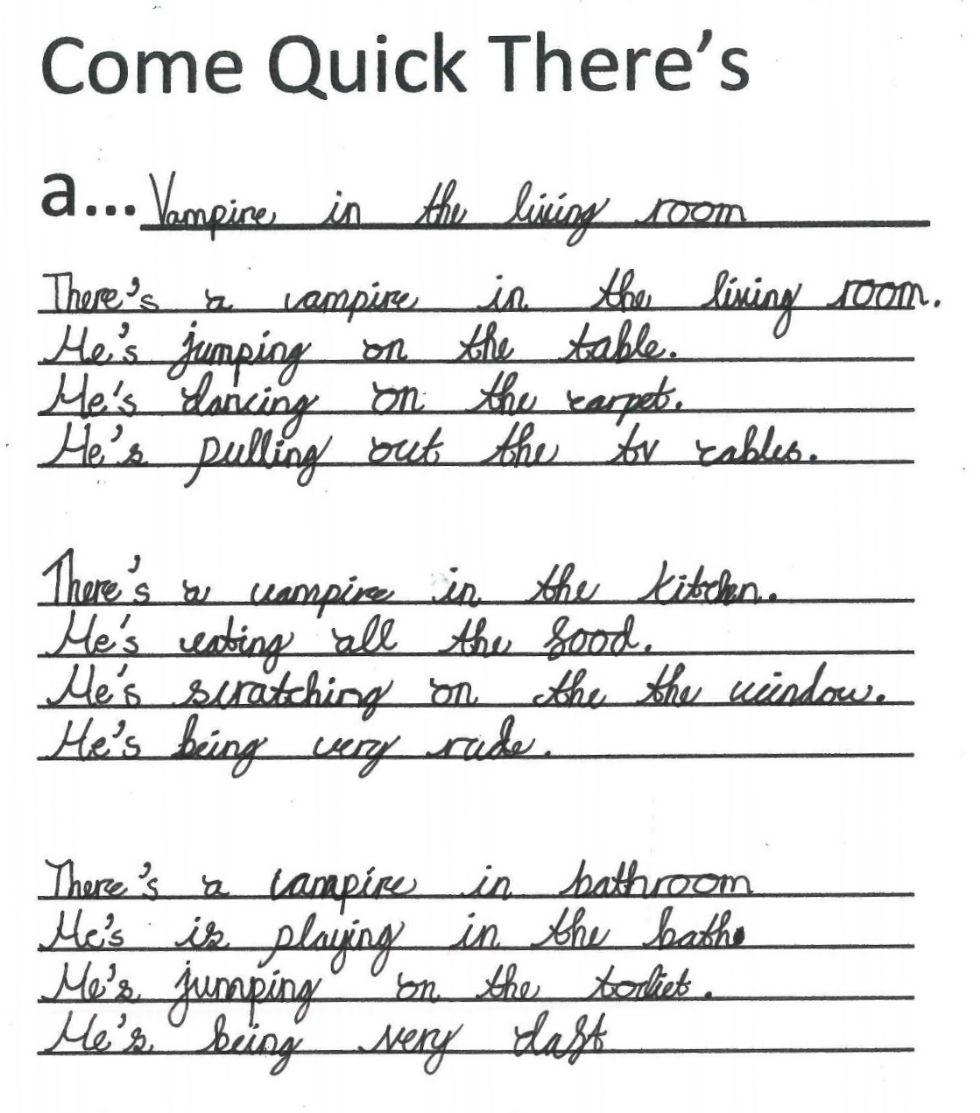 Come Quick There's
a... Vampire in the living room
There's a vampire in the living room.
He's jumping on the table.
He's dancing on the carpet.
He's pulling out the tv cables.
There's a vampire in the kitchn.
He's eating all the food.
He's scratching on the the window.
He's being very rude.
There's a vampire in bathroom
He's is playing in the bath.
He's jumping on the toiliet.
He's being very daft